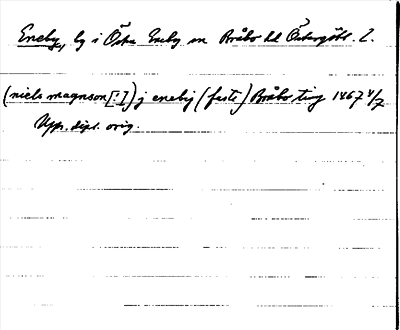 Eneby, by i Östra Eneby sn Bråbo hd Östergötl. L.
(niels magnson[?]) j eneby (faste) Bråbo ting 1467 4/7
Upps. dipl. orig.